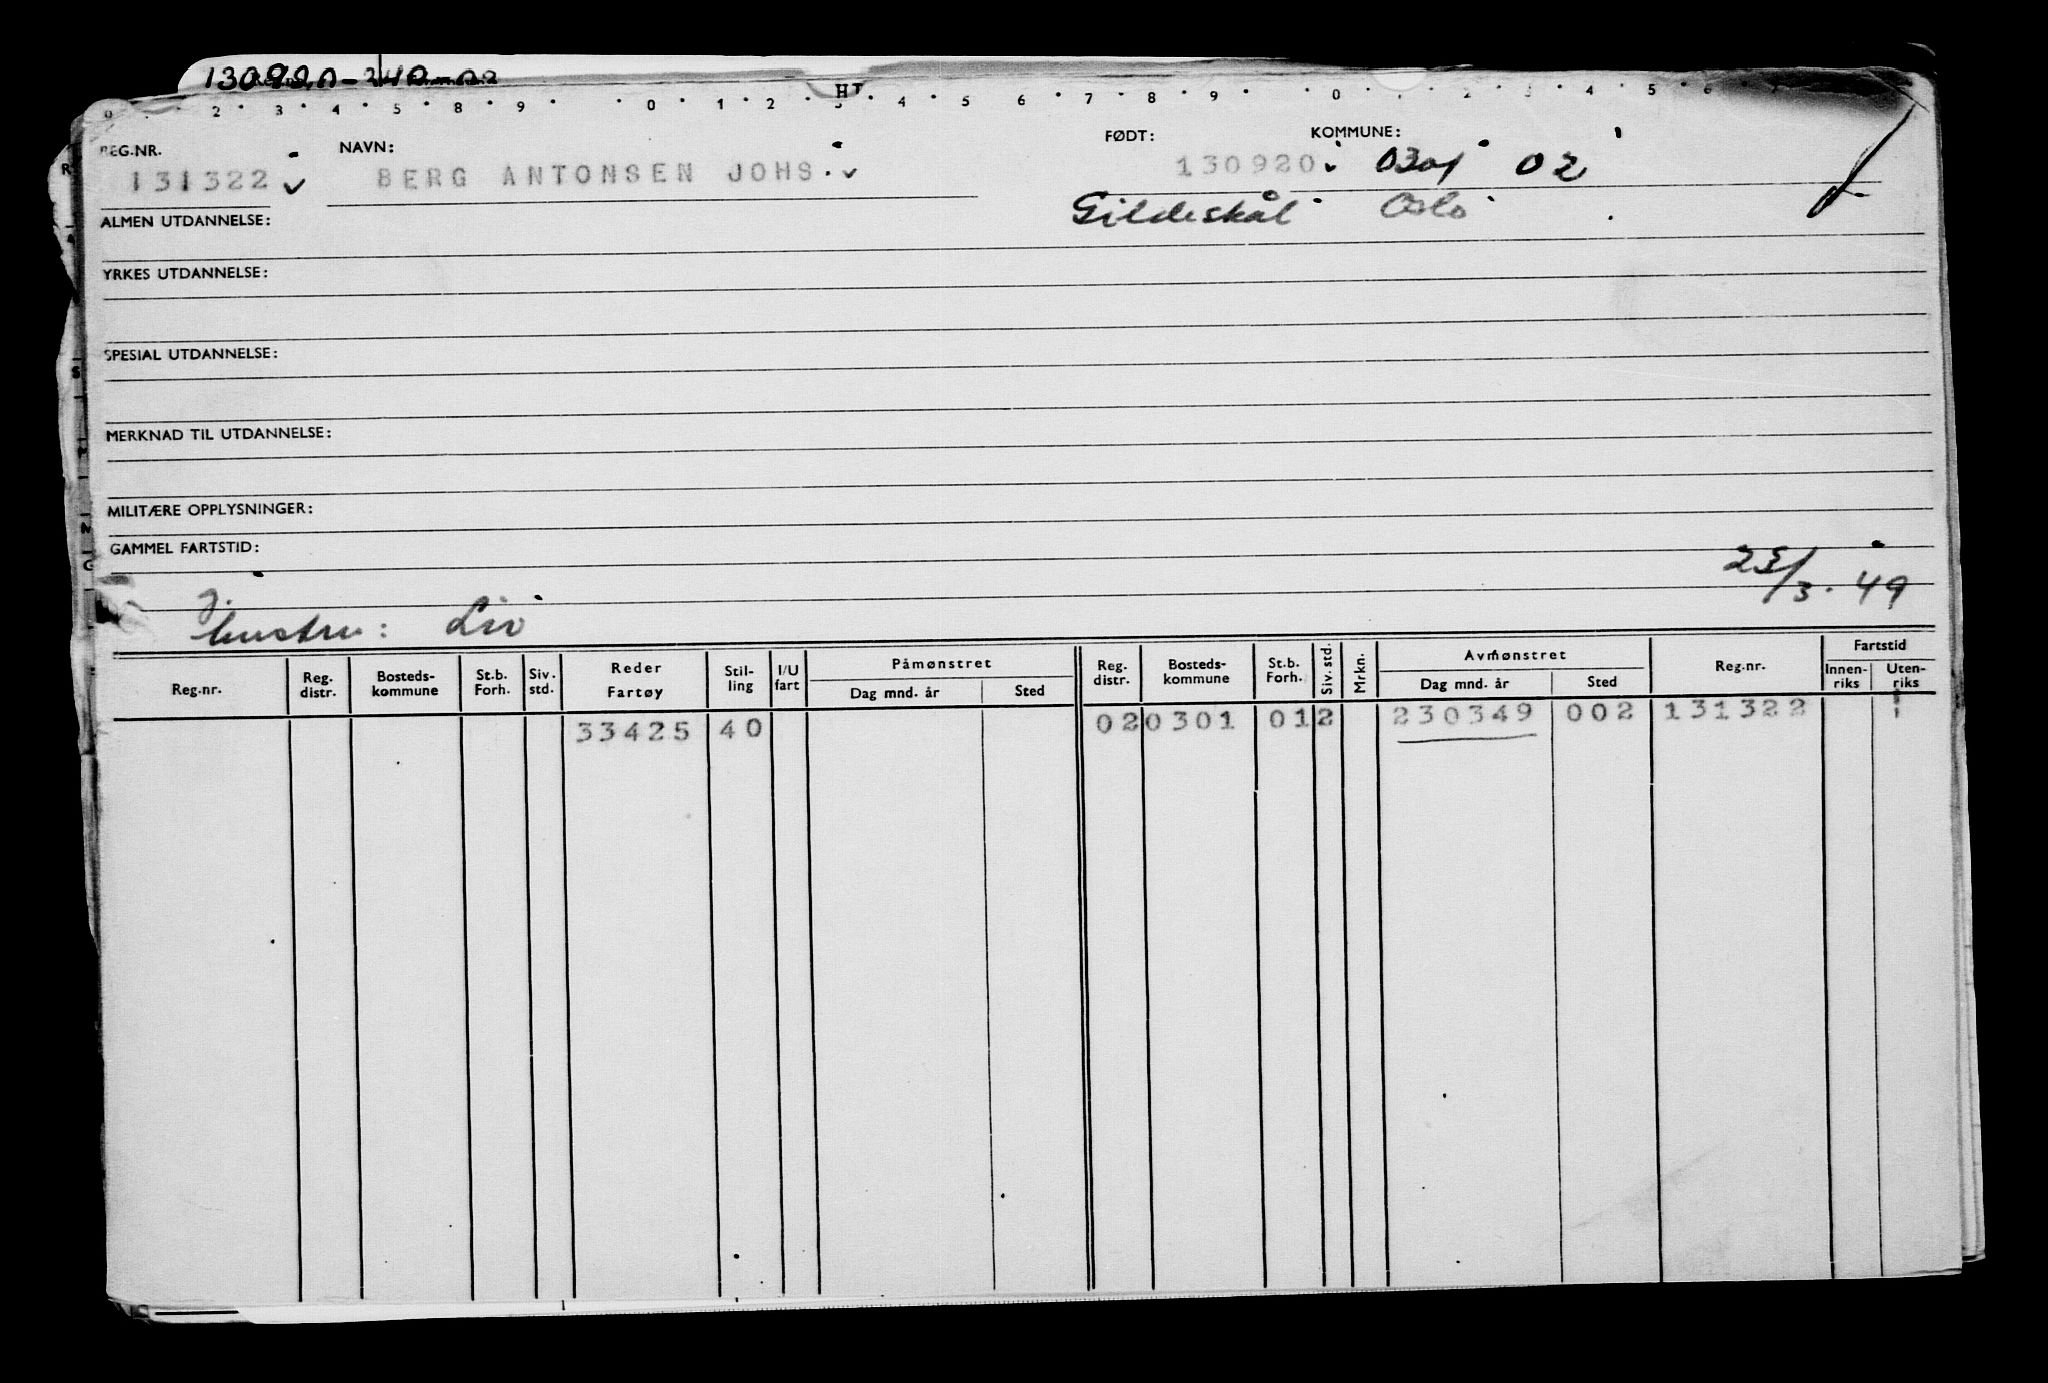 130920-240-02
HI
0 2 3 4 5 8 9 0 1 2 3 4 5 6 7 8 9 0 2 3 4 5 6
REG.NR. NAVN: FØDT: KOMMUNE:
131322 BERG ANTONSEN JOHS. 130920 0301 02
Gildeskål Oslo
ALMEN UTDANNELSE:
YRKES UTDANNELSE:
SPESIAL UTDANNELSE:
MERKNAD TIL UTDANNELSE:
MILITÆRE OPPLYSNINGER:
GAMMEL FARTSTID:
23/3. 49
hustru: Liv
Reg.nr. Reg. distr. Bosteds-kommune St.b. Forh. Siv. std. Reder Fartøy Stil-ling I/U fart Påmønstret Dag mnd. år Sted Reg. distr. Bosteds-kommune St.b. Forh. Siv. std. Mrkn. Avmønstret Dag mnd. år Sted Reg.nr. Fartstid Innen-riks Uten-riks
33425 40 02 0301 01 2 230349 002 131322